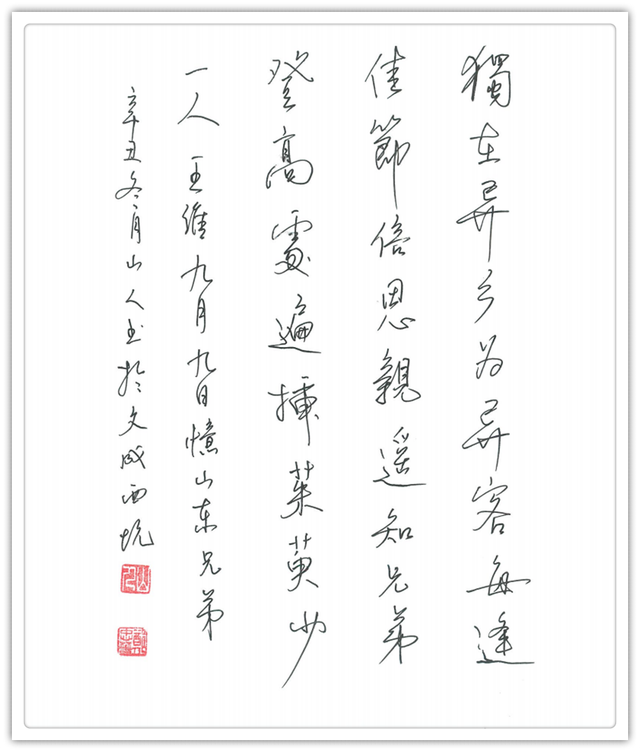 獨在异乡为异客每逢
佳節倍思親遥知兄弟
登高處遍插茱萸少
一人 王維九月九日憶山东兄弟
辛丑冬月山人书於文成西坑